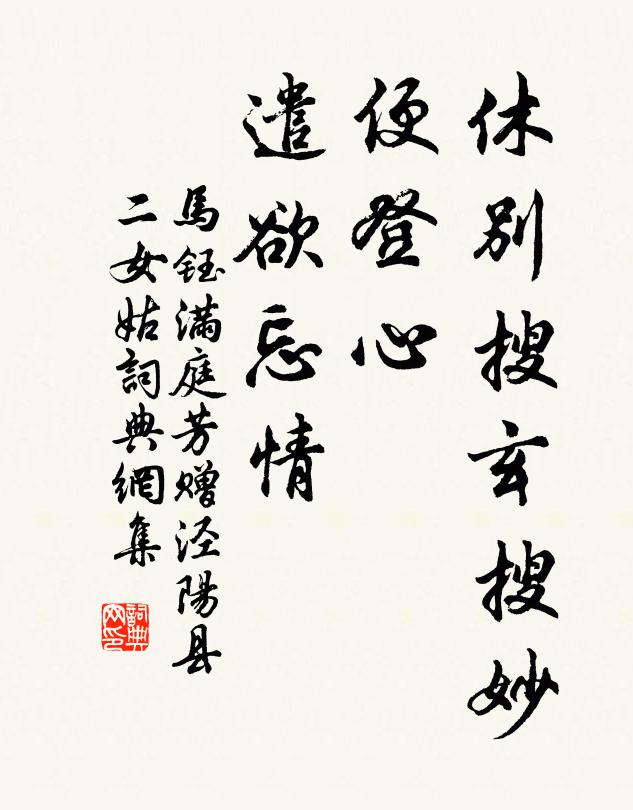 休别搜玄搜妙
便登心
遣欲忘情
馬鈺满庭芳赠泾陽县
二女姑詞典網集
詞典网印